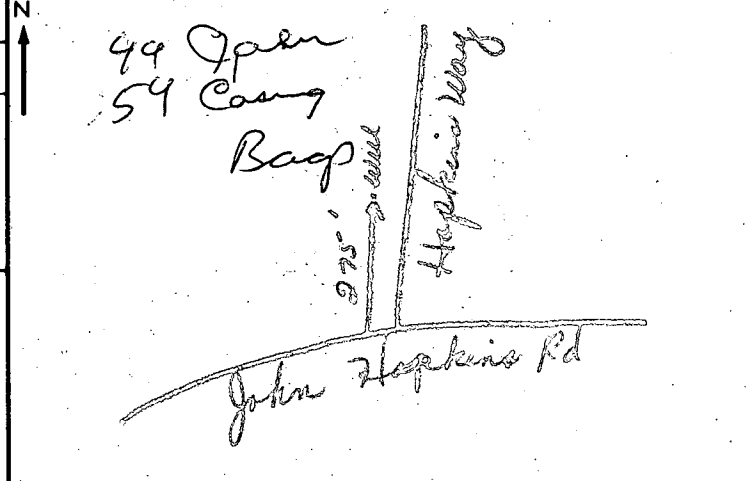 N
44 Open
54 Casing
Bags
well
Hopkins Way
275'
John Hopkins Rd